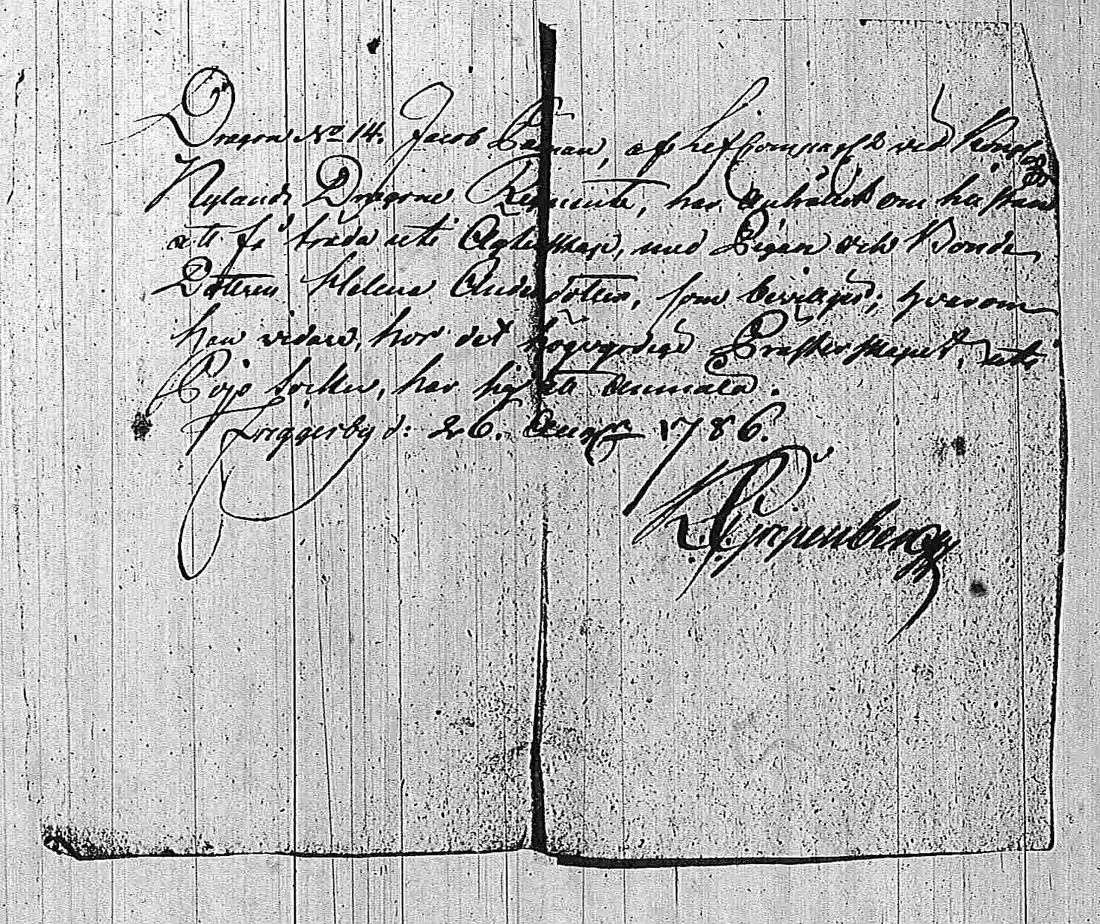 Dragon No 14. Jacob, af Lif Compagt vid Kongl
Nylands Dragone Regimente, har anhållit om his
att få träda uti Ägtenskap, med Pigan och Bonde
Dottren Helena Andersdotter, som beviljas; hvarom
han vidare, hos det högvyrdige Prästerskapet, uti
Pojo Socken, har sig att anmäla.
Träggerby d: 26. Aug 1786.
Gripenberg